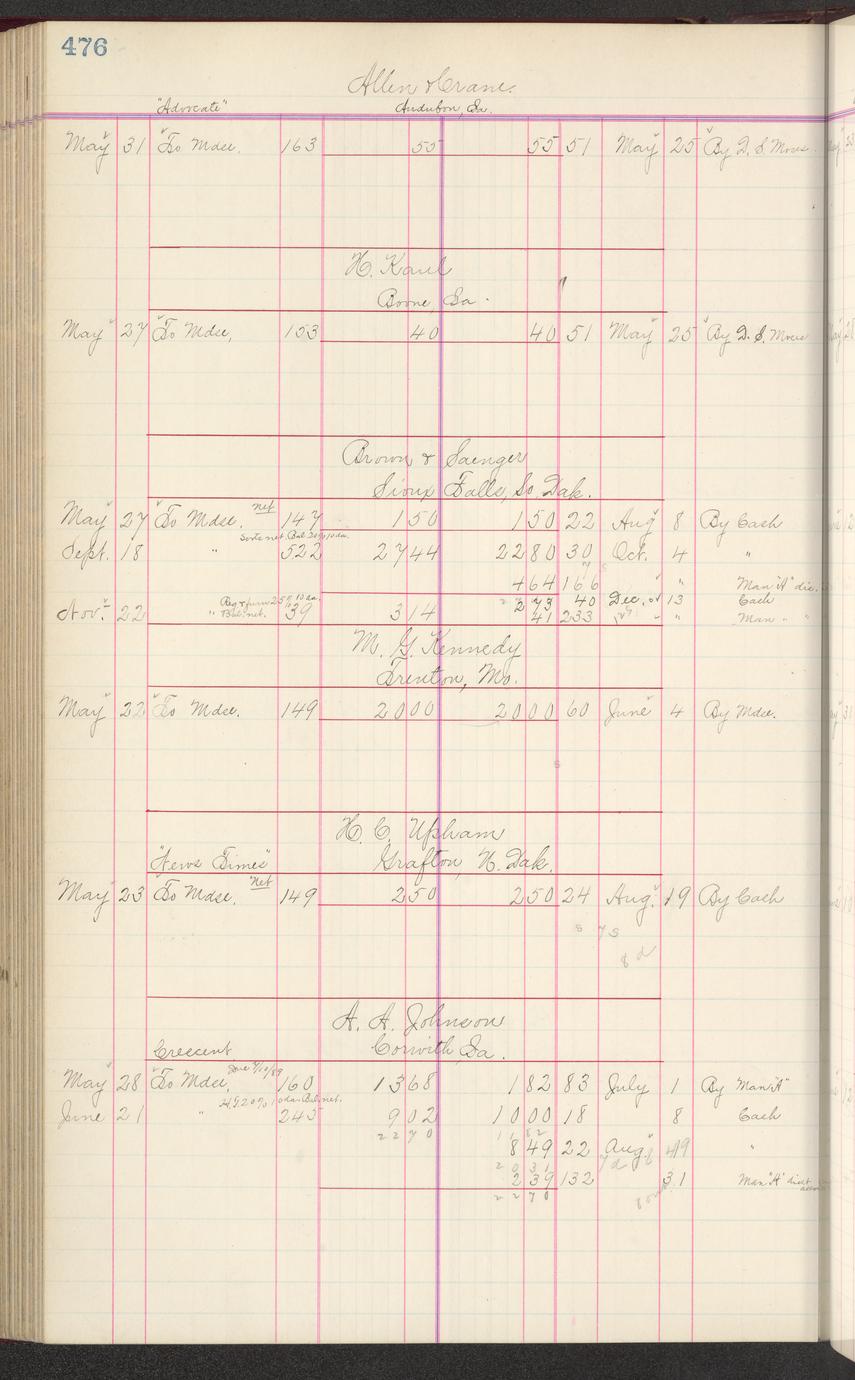 476
Allen & Crane.
"Advocate" Audubon, Ia.
May 31 To Mdse. 163 55 55 51 May 25 By D. S. Moses
H. Kaul
Boone, Ia.
May 27 To Mdse, 153 40 40 51 May 25 By D. S. Moses
Brown & Saenger
Sioux Falls, So. Dak.
May 27 To Mdse. net 147 150 150 22 Aug 8 By Cash
Sorts net. Bal 20% 10 da.
Sept. 18 " 522 2744 2280 30 Oct. 4 "
464 166 " " Man "A" dis.
Reg & furn 25% 10 da. 273 40 Dec. 13 Cash
Nov. 22 " Bal. net. 39 314 41 233 " " Man " "
M. G. Kennedy
Trenton, Mo.
May 22 To Mdse. 149 2000 2000 60 June 4 By Mdse.
H. C. Upham
"News Times" Grafton, N. Dak.
May 23 To Mdse. Net 149 250 250 24 Aug. 19 By Cash
A. A. Johnson
Crescent Corwith, Ia.
May 28 To Mdse, 160 1368 182 83 July 1 By Man "A"
20% 10 da. Bal. net.
June 21 " 245 902 1000 18 8 Cash
2270 1182
849 22 Aug. 19 "
2031
239 132 31 Man "A"
2270